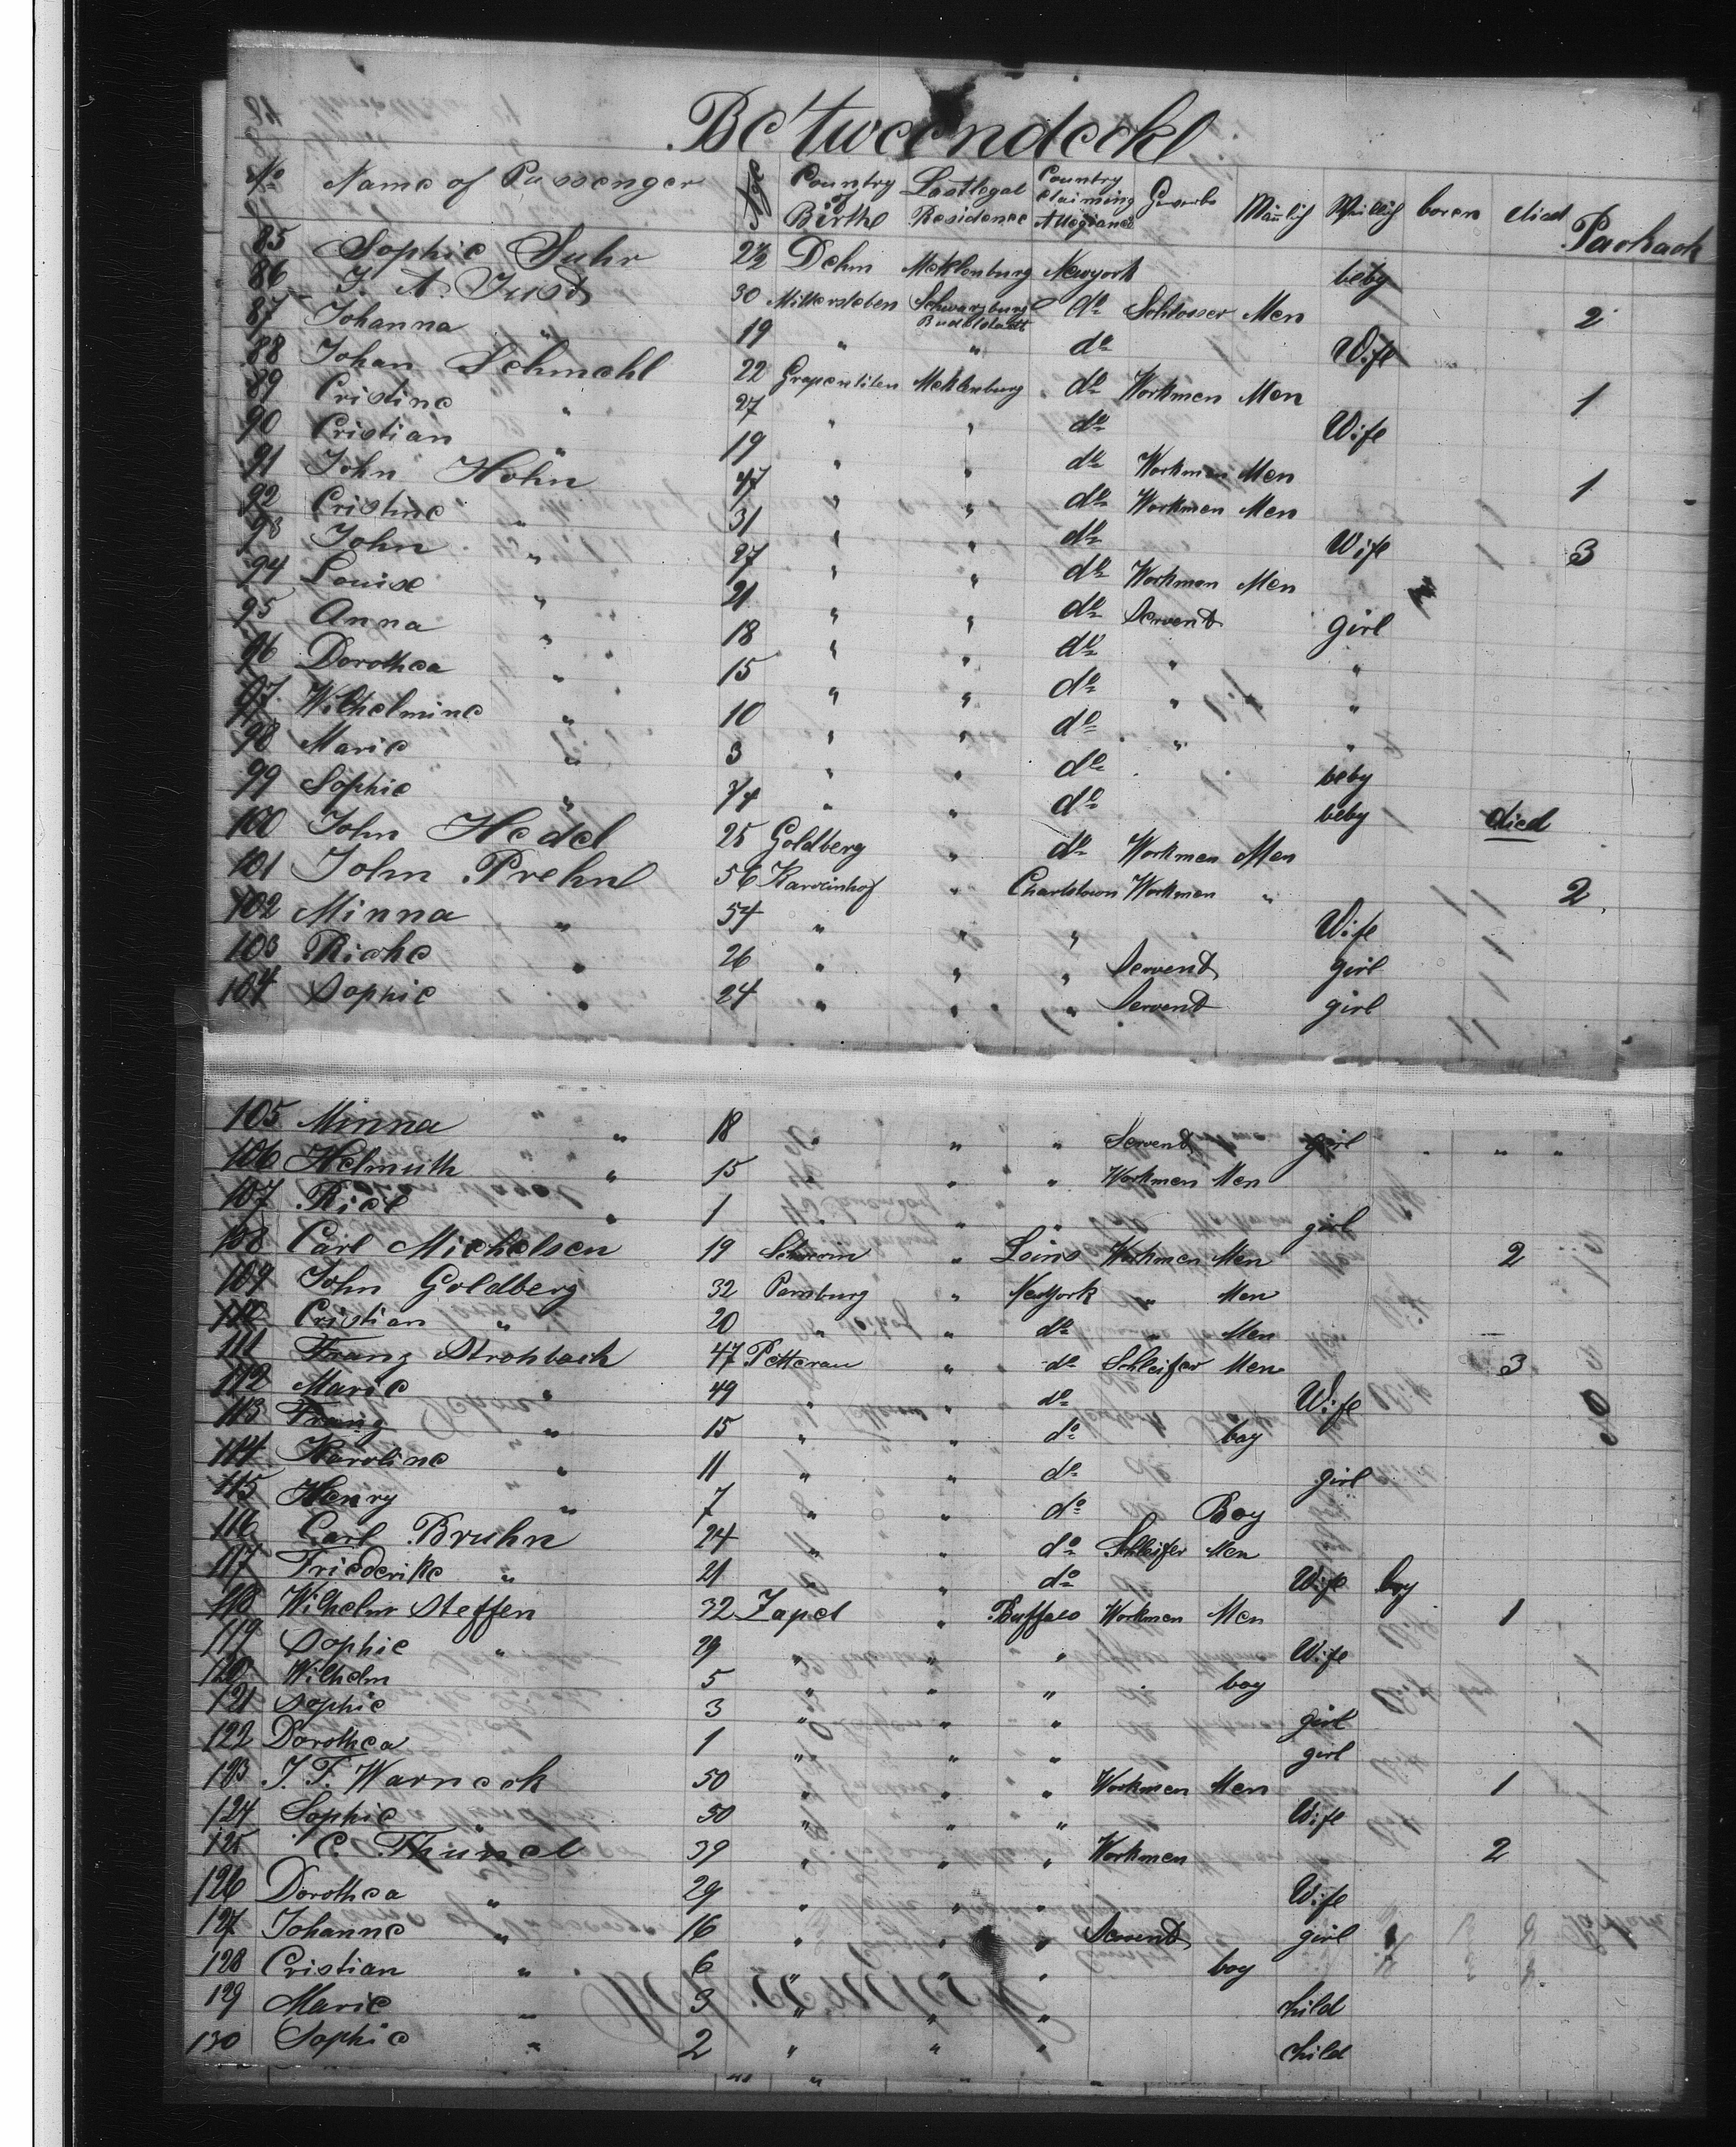 Betweendeckl
No Name of Passenger Age Country of Birthe Lastlegal Residence Country claiming Allegiance Gewerbe Mänlich Weiblich boren died Packack
85 Sophie Suhr 2½ Dehm Meklenburg Newyork beby
86 J. A. Just 30 Schwarzburg do Schlosser Men 2
87 Johanna " 19 " " do Wife
88 Johan Schmehl 22 Meklenburg do Workmen Men 1
89 Cristine " 27 " " do Wife
90 Cristian " 19 " " do Workmen Men
91 John Hohn 47 " " do Workmen Men 1
92 Cristine " 31 " " do Wife 3
93 John " 27 " " do Workmen Men
94 Louise " 21 " " do Servent girl
95 Anna " 18 " " do " "
96 Dorothea " 15 " " do " "
97 Wilhelmine " 10 " " do " "
98 Marie " 3 " " do beby
99 Sophie " " " do beby died
100 John Hedel 25 Goldberg " do Workmen Men
101 John Prehnl 56 " Charlstown Workmen " 2
102 Minna " 54 " " " Wife
103 Rieke " 26 " " " Servent girl
104 Sophie " 24 " " " Servent girl
105 Minna " 18 " " " Servent girl
106 Helmuth " 15 " " " Workmen Men
107 Ricl " 1 " " " girl
108 Carl Michelsen 19 Schwerin " Loins Workmen Men 2
109 John Goldberg 32 Pamburg " Newyork " Men
110 Cristian " 20 " " do " Men
111 Franz Strohbach 47 Petterau " do Schleifer Men 3
112 Marie " 49 " " do Wife
113 Franz " 15 " " do boy
114 Karoline " 11 " " do girl
115 Henry " 7 " " do Boy
116 Carl Bruhn 24 " " do Schleifer Men
117 Friederike " 21 " " do Wife boy
118 Wilhelm Steffen 32 Zapel " Buffalo Workmen Men 1
119 Sophie " 29 " " " Wife
120 Wilhelm 5 " " " boy
121 Sophie 3 " " " girl
122 Dorothea 1 " " " girl
123 J. F. Warneck 50 " " " Workmen Men 1
124 Sophie " 50 " " " Wife
125 C. Thünel 39 " " " Workmen 2
126 Dorothea " 29 " " " Wife
127 Johanne " 16 " " " Servent girl
128 Cristian " 6 " " " boy
129 Marie " 3 " " " child
130 Sophie " 2 " " " child